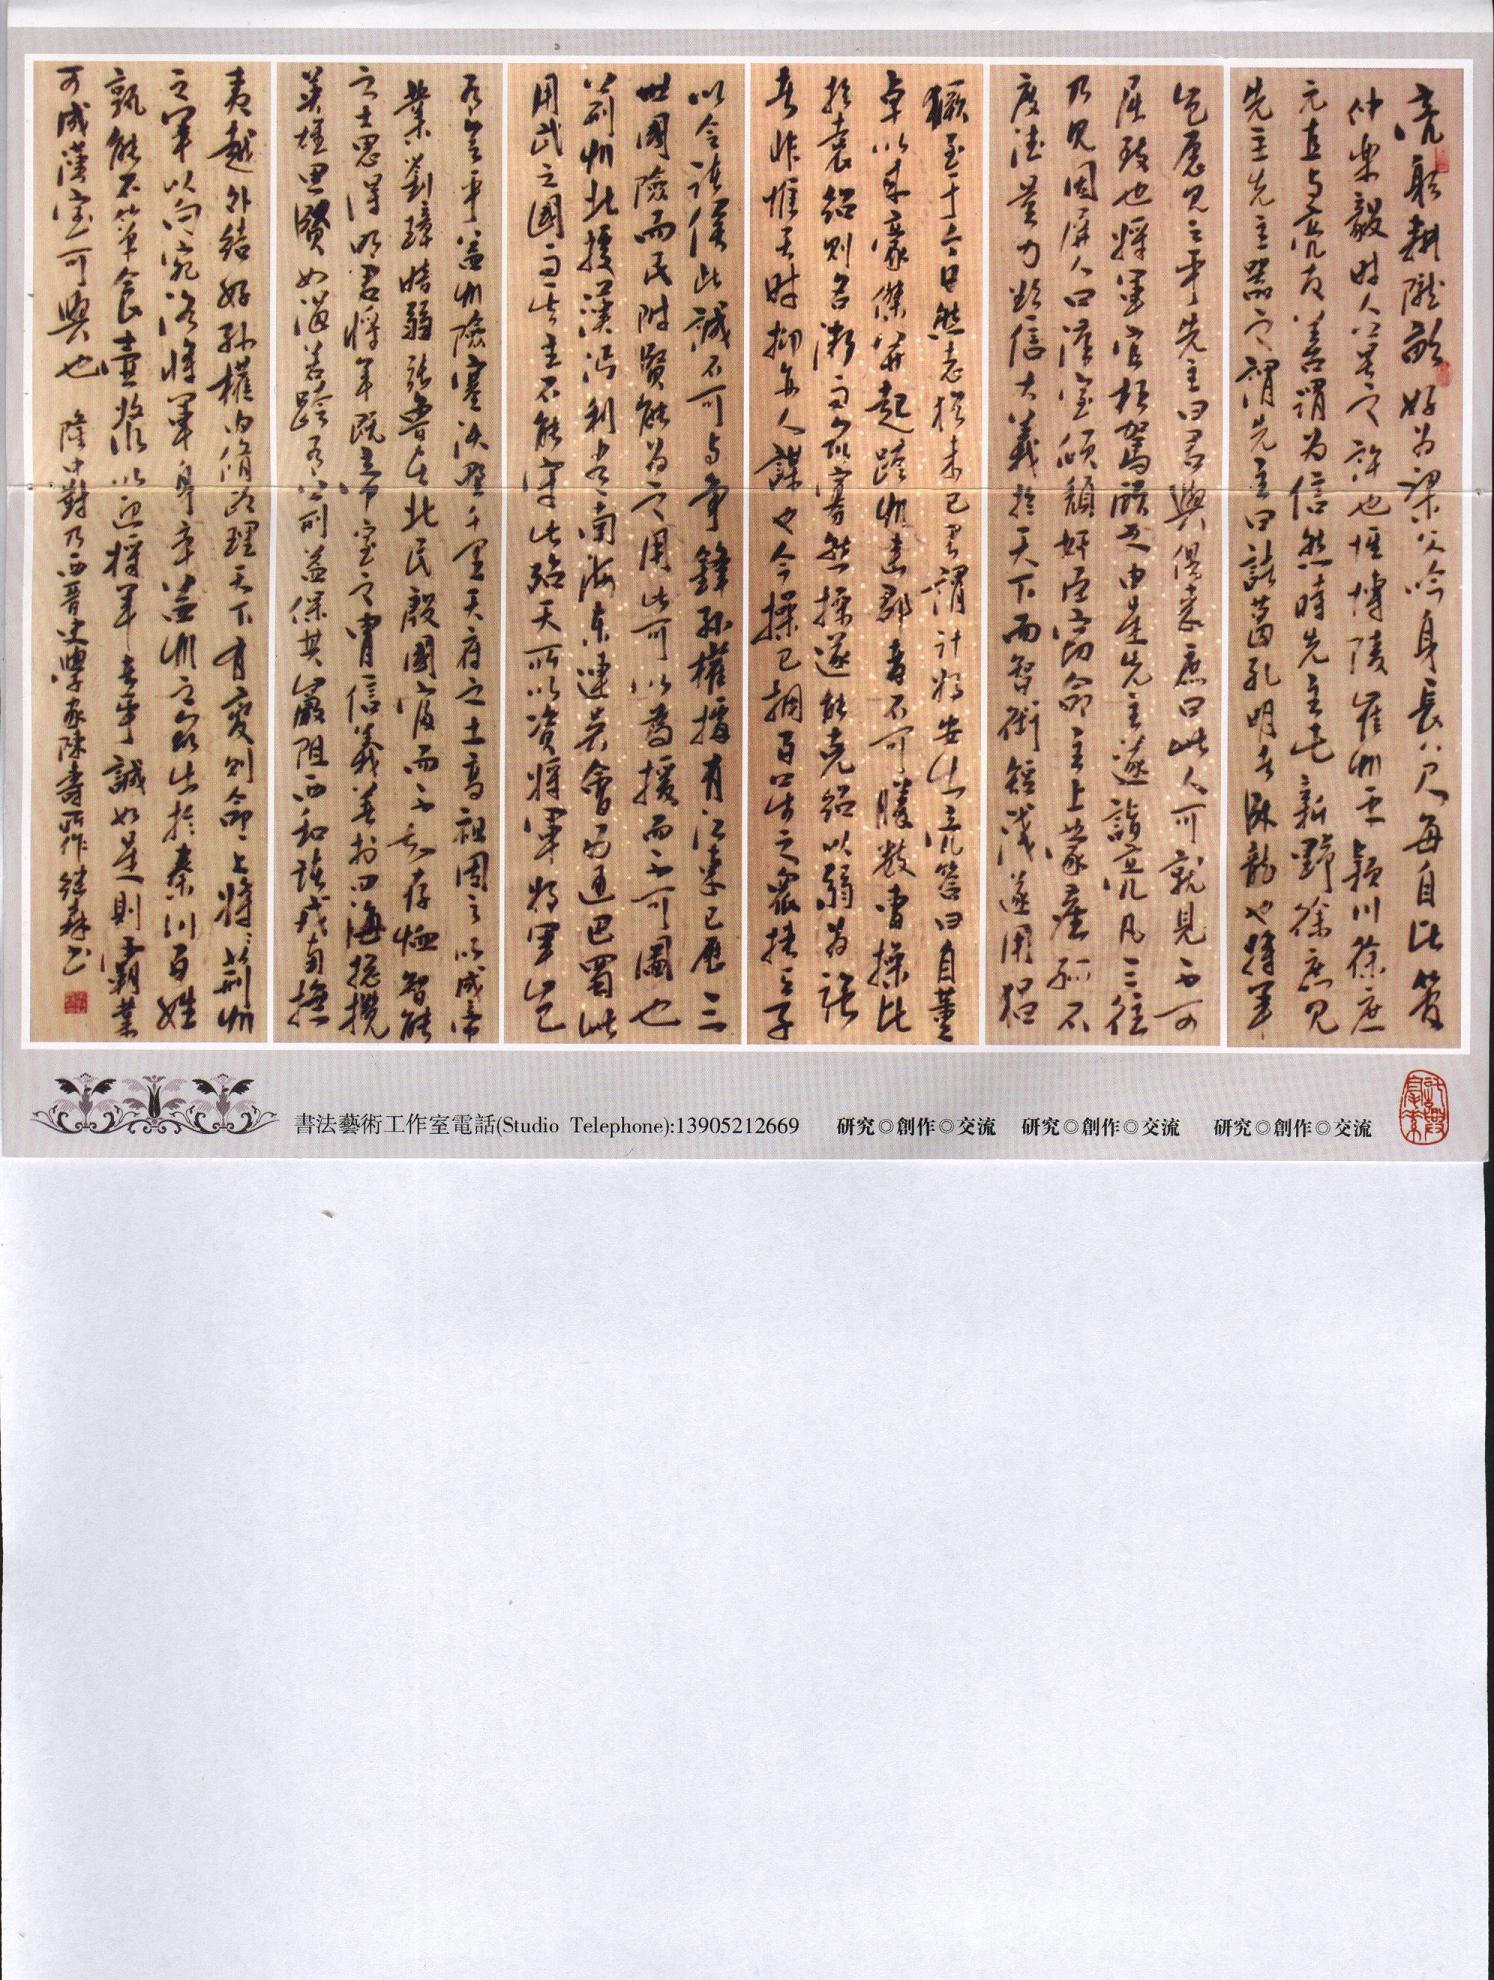 亮躬耕隴畝好为梁父吟身長八尺每自比管
仲樂毅时人莫之許也惟博陵崔州平颍川徐庶
元直与亮友善謂为信然時先主屯新野徐庶見
先主先主器之謂先主曰諸葛孔明者臥龍也將軍
豈愿見之乎先主曰君與俱來庶曰此人可就見不可
屈致也將軍宜枉駕顧之由是先主遂詣亮凡三往
乃見因屏人曰漢室傾頹奸臣窃命主上蒙塵孤不
度德量力欲信大義於天下而智術短淺遂用猖
獗至于今日然志猶未已君謂計将安出亮答曰自董
卓以來豪傑并起跨州連郡者不可勝數曹操比
於袁紹则名微而众寡然操遂能克紹以弱为強
者非惟天时抑亦人謀也今操已拥百万之眾挟天子
以令诸侯此誠不可与争鋒孙權據有江東已歷三
世國險而民附賢能为之用此可以為援而不可圖也
荊州北據漢沔利尽南海東連吴會西通巴蜀此
用武之國而其主不能守此殆天所以资將軍将軍豈
有意乎益州險塞沃野千里天府之土高祖因之以成帝
業劉璋暗弱張魯在北民殷國富而不知存恤智能
之士思得明君將軍既帝室之胄信義著於四海總攬
英雄思賢如渴若跨有荊益保其巖阻西和諸戎南撫
夷越外結好孙權内修政理天下有变则命一上將將荊州
之軍以向宛洛將軍身率益州之眾出於秦川百姓
孰能不箪食壺漿以迎将軍者乎誠如是則霸業
可成漢室可興也 隆中對乃西晉史學家陳壽所作 继森书
書法藝術工作室電話(Studio Telephone):13905212669 研究◎創作◎交流 研究◎創作◎交流 研究◎創作◎交流